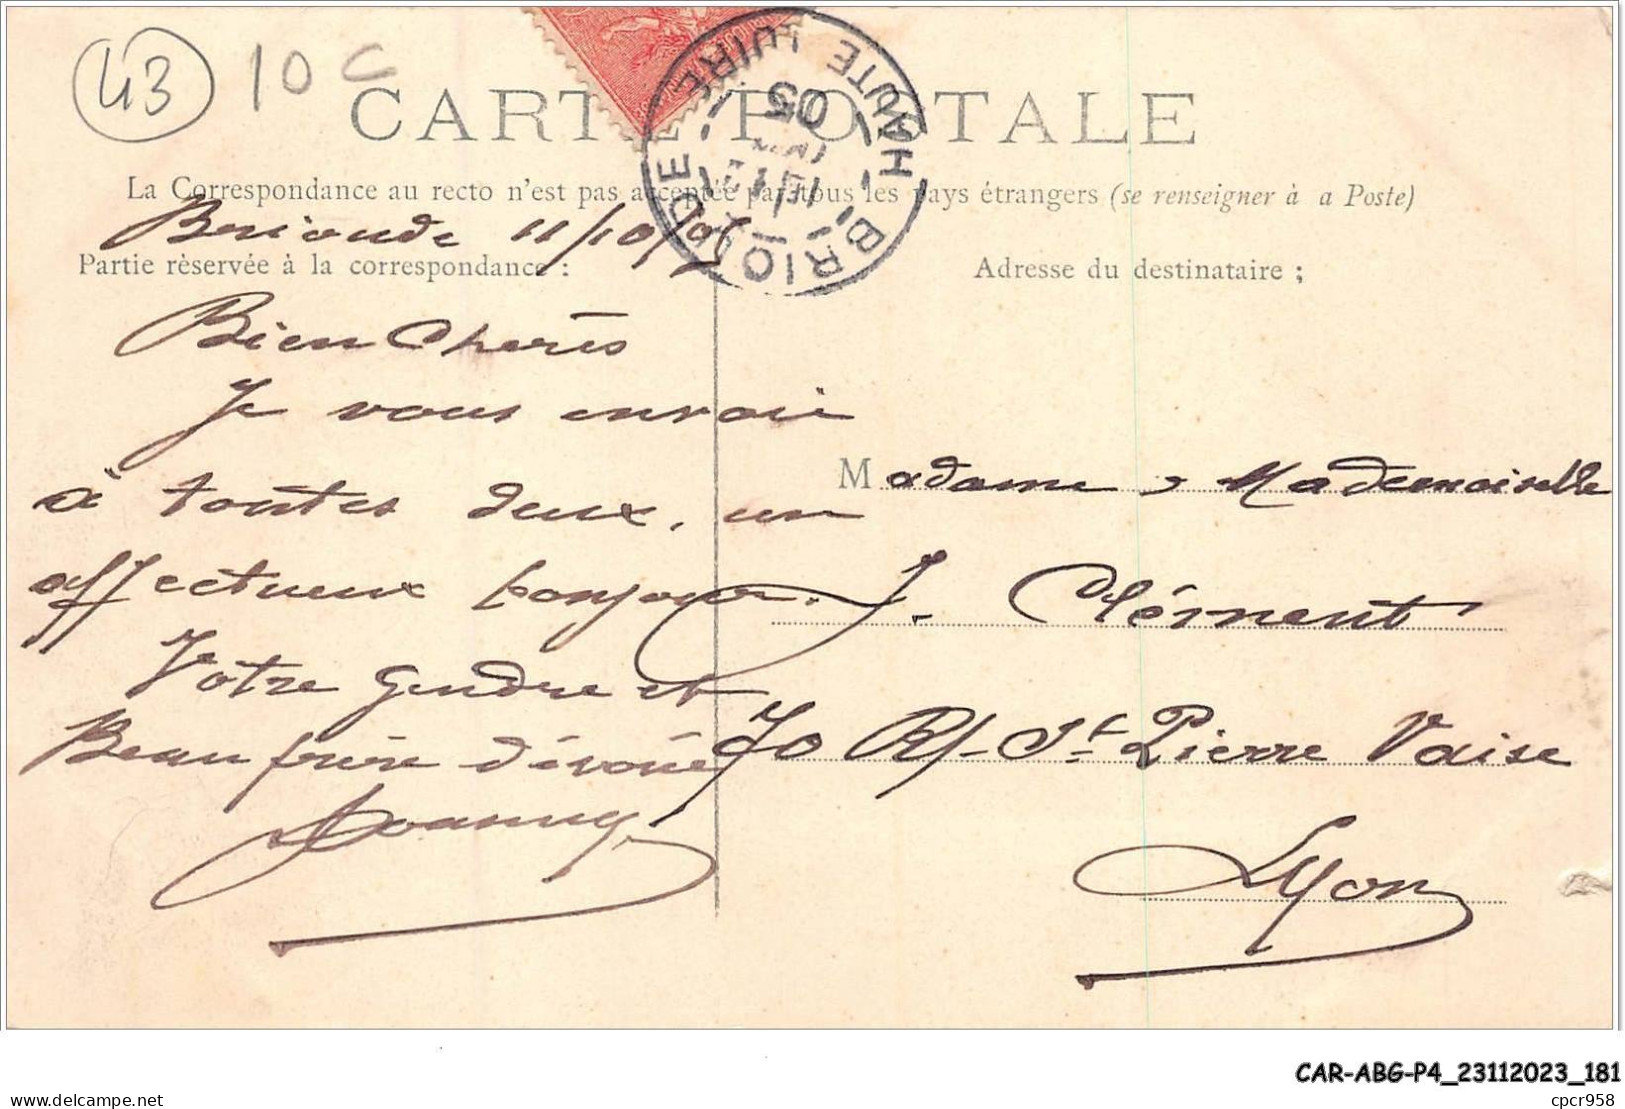 43
10 c
CARTE POSTALE
BRIOUDE HAUTE LOIRE
05
La Correspondance au recto n'est pas acceptée par tous les pays étrangers (se renseigner à a Poste)
Brioude 11/10/05
Partie réservée à la correspondance :
Bien Cheres
Je vous envoie
à toutes deux, un
affectueux bonjour.
Votre gendre et
Beau frère dévoué
Joanny
Adresse du destinataire ;
Madame & Mademoiselle
J. Clément
70 R/- St Pierre Vaise
Lyon
CAR-ABG-P4_23112023_181
delcampe.net
cpcr958